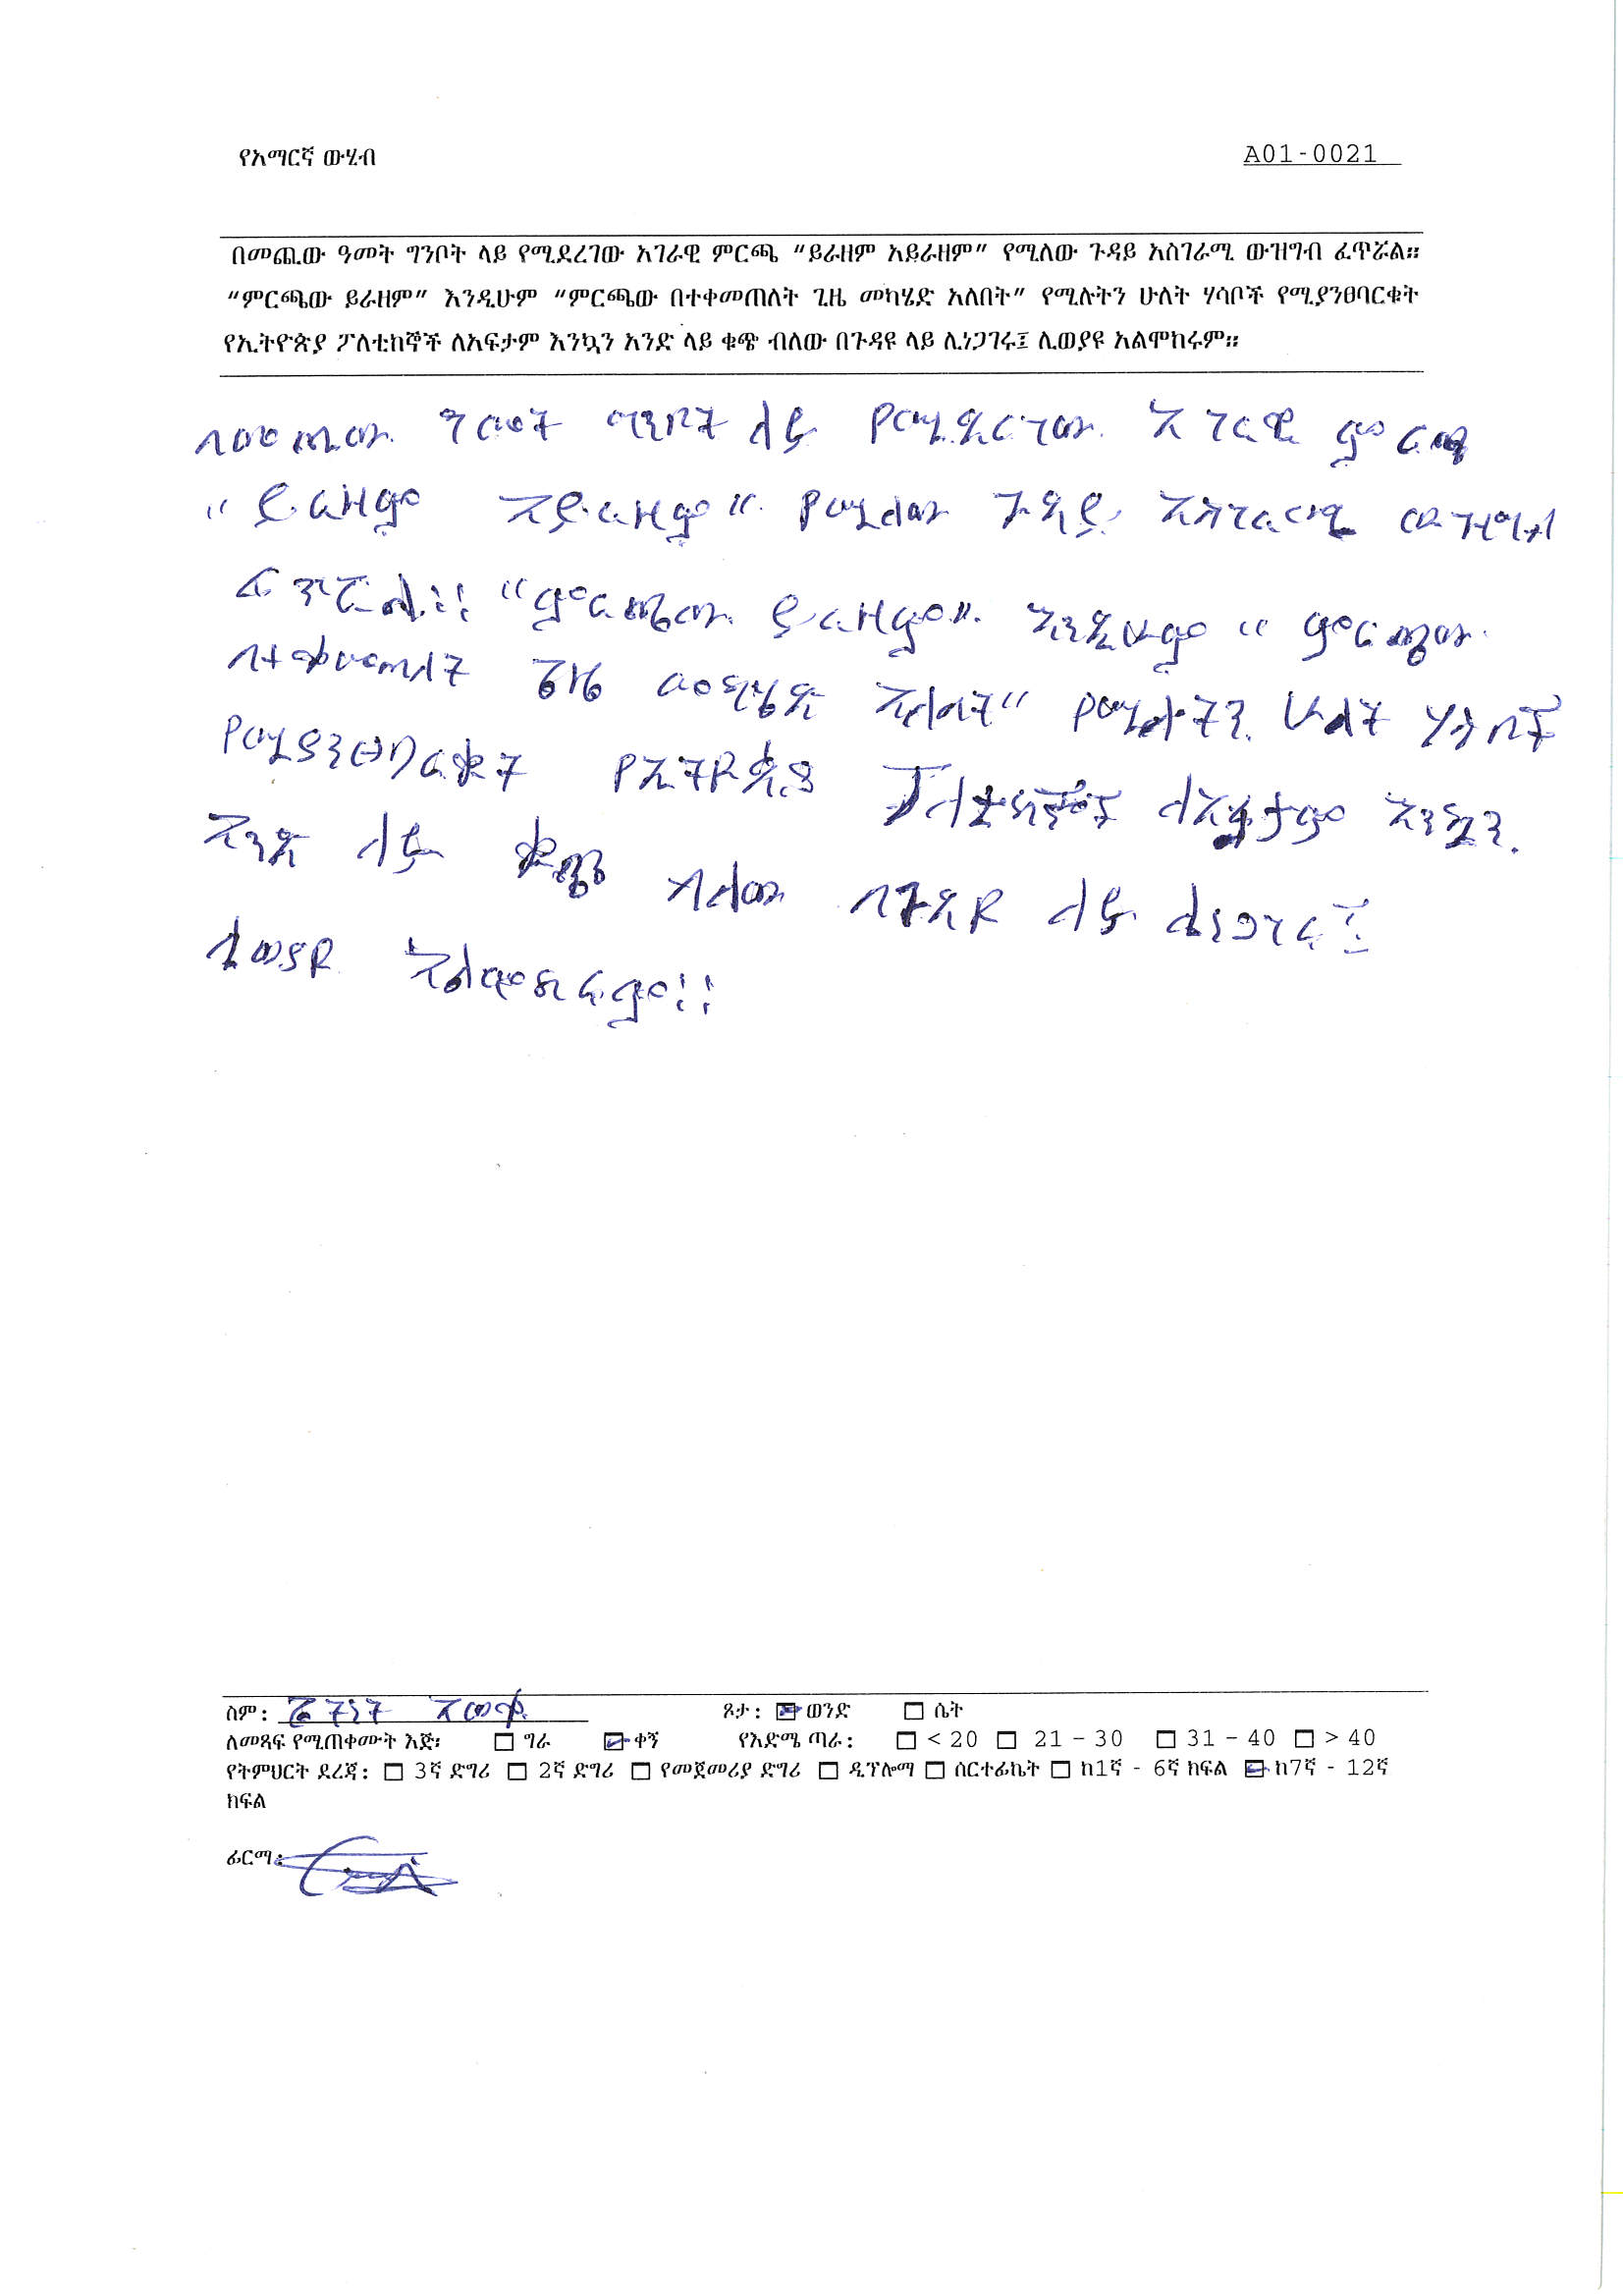 የአማርኛ ውሂብ A01-0021
በመጪው ዓመት ግንቦት ላይ የሚደረገው አገራዊ ምርጫ “ይራዘም አይራዘም” የሚለው ጉዳይ አስገራሚ ውዝግብ ፈጥሯል።
“ምርጫው ይራዘም” እንዲሁም “ምርጫው በተቀመጠለት ጊዜ መካሄድ አለበት” የሚሉትን ሁለት ሃሳቦች የሚያንፀባርቁት
የኢትዮጵያ ፖለቲከኞች ለአፍታም እንኳን አንድ ላይ ቁጭ ብለው በጉዳዩ ላይ ሊነጋገሩ፤ ሊወያዩ አልሞከሩም።
በመጪው ዓመት ግንቦት ላይ የሚደረገው አገራዊ ምርጫ
“ይራዘም አይራዘም” የሚለው ጉዳይ አስገራሚ ውዝግብ
ፈጥሯል። “ምርጫው ይራዘም” እንዲሁም “ምርጫው
በተቀመጠለት ጊዜ መካሄድ አለበት” የሚሉትን ሁለት ሃሳቦች
የሚያንፀባርቁት የኢትዮጵያ ፖለቲከኞች ለአፍታም እንኳን
አንድ ላይ ቁጭ ብለው በጉዳዩ ላይ ሊነጋገሩ፤
ሊወያዩ አልሞከሩም።
ስም: ጌትነት አወቀ ጾታ: ወንድ ሴት
ለመጻፍ የሚጠቀሙት እጅ፡ ግራ ቀኝ የእድሜ ጣራ: < 20 21 - 30 31 - 40 > 40
የትምህርት ደረጃ: 3ኛ ድግሪ 2ኛ ድግሪ የመጀመሪያ ድግሪ ዲፕሎማ ሰርተፊኬት ከ1ኛ - 6ኛ ክፍል ከ7ኛ - 12ኛ
ክፍል
ፊርማ: